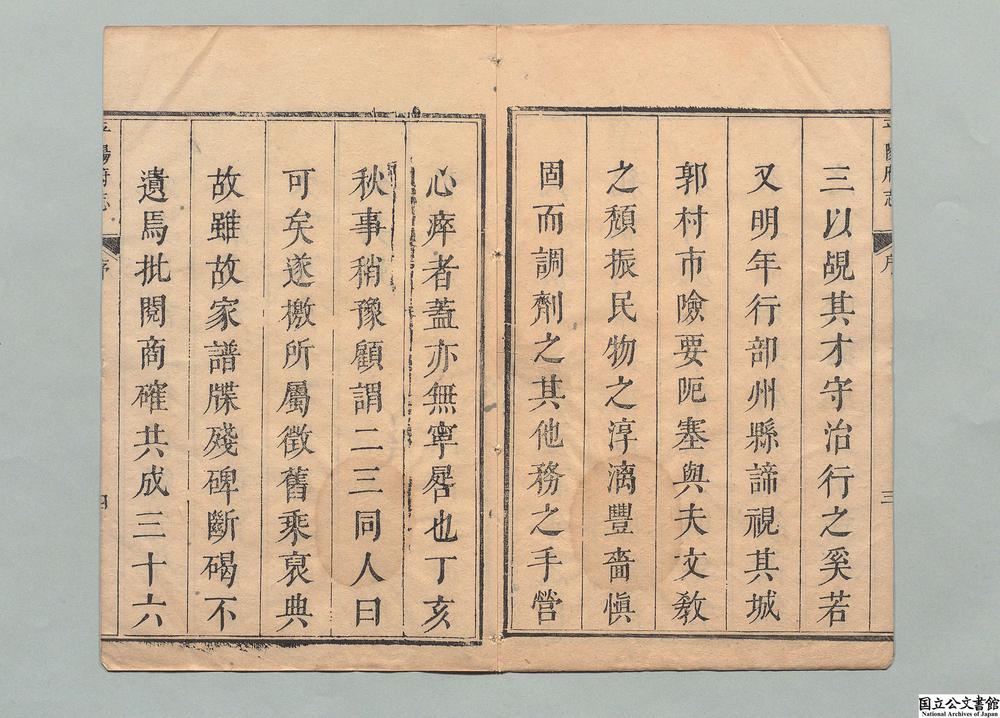 三以覘其才守治行之奚若
又明年行部州縣諦視其城
郭村市險要阨塞與夫文教
之頽振民物之淳漓豐嗇愼
固而調劑之其他務之手營
心瘁者蓋亦無寧晷也丁亥
秋事稍豫顧謂二三同人曰
可矣遂檄所屬徵舊乘裒典
故雖故家譜牒殘碑斷碣不
遺焉批閱商確共成三十六
陽府志
序
三
陽府志
序
四
国立公文書館
National Archives of Japan